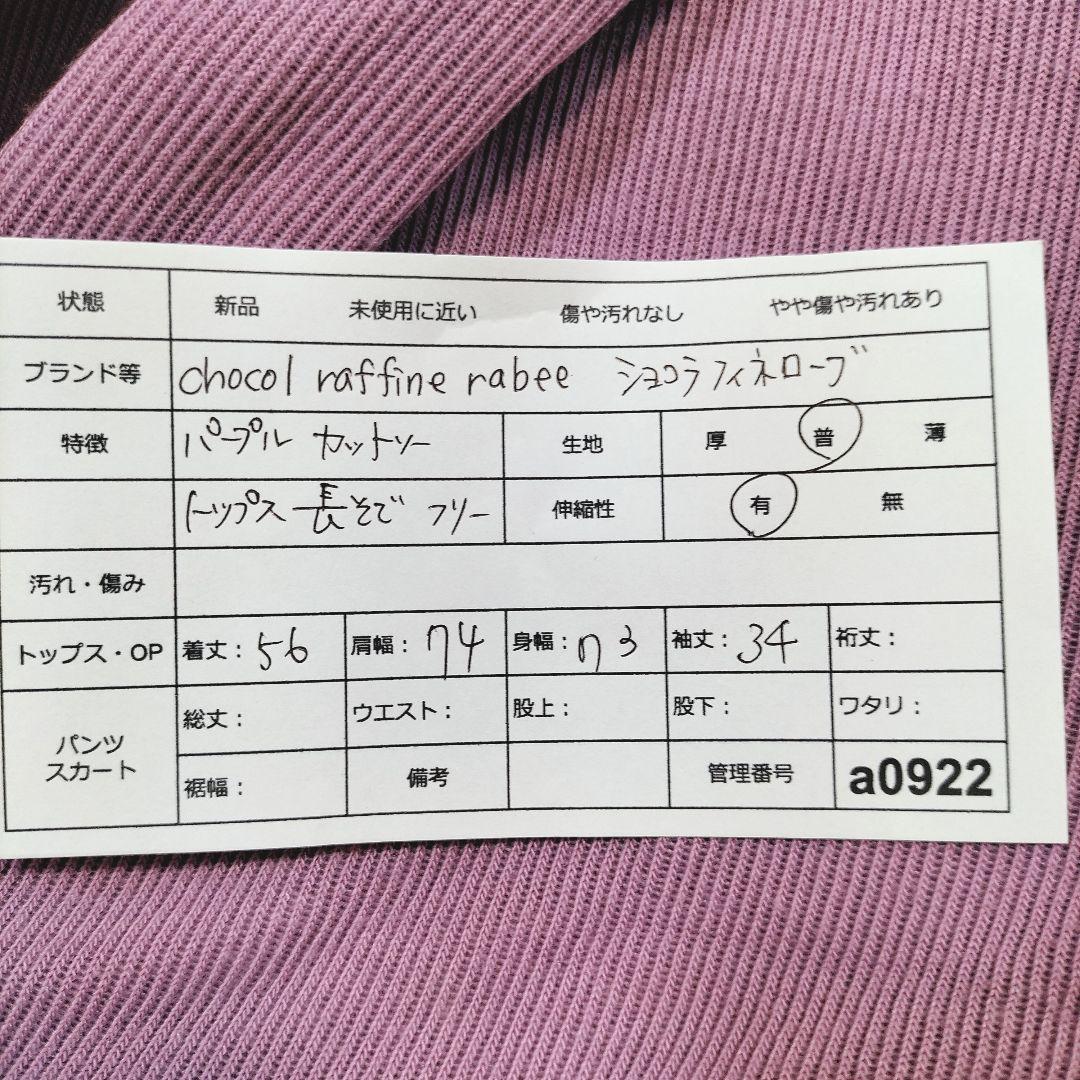 状態 新品 未使用に近い 傷や汚れなし やや傷や汚れあり
ブランド等 chocol raffine rabee ショコラフィネローブ
特徴 パープル カットソー 生地 厚 普 薄
トップス 長そで フリー 伸縮性 有 無
汚れ・傷み
トップス・OP 着丈：56 肩幅：74 身幅：73 袖丈：34 裄丈：
パンツ スカート 総丈： ウエスト： 股上： 股下： ワタリ：
裾幅： 備考 管理番号 a0922